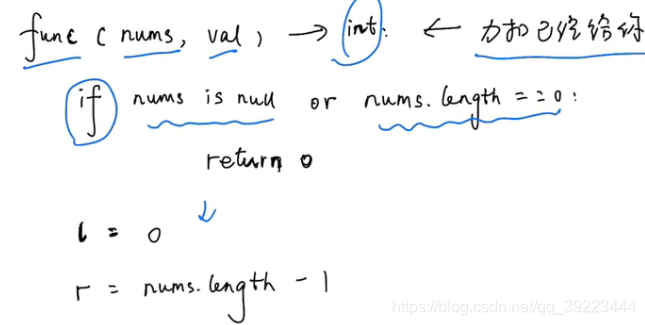 func ( nums, val ) → int: ← 力扣已经给你
if nums is null or nums.length == 0:
return 0
↓
l = 0
r = nums.length - 1
https://blog.csdn.net/qq_39223444